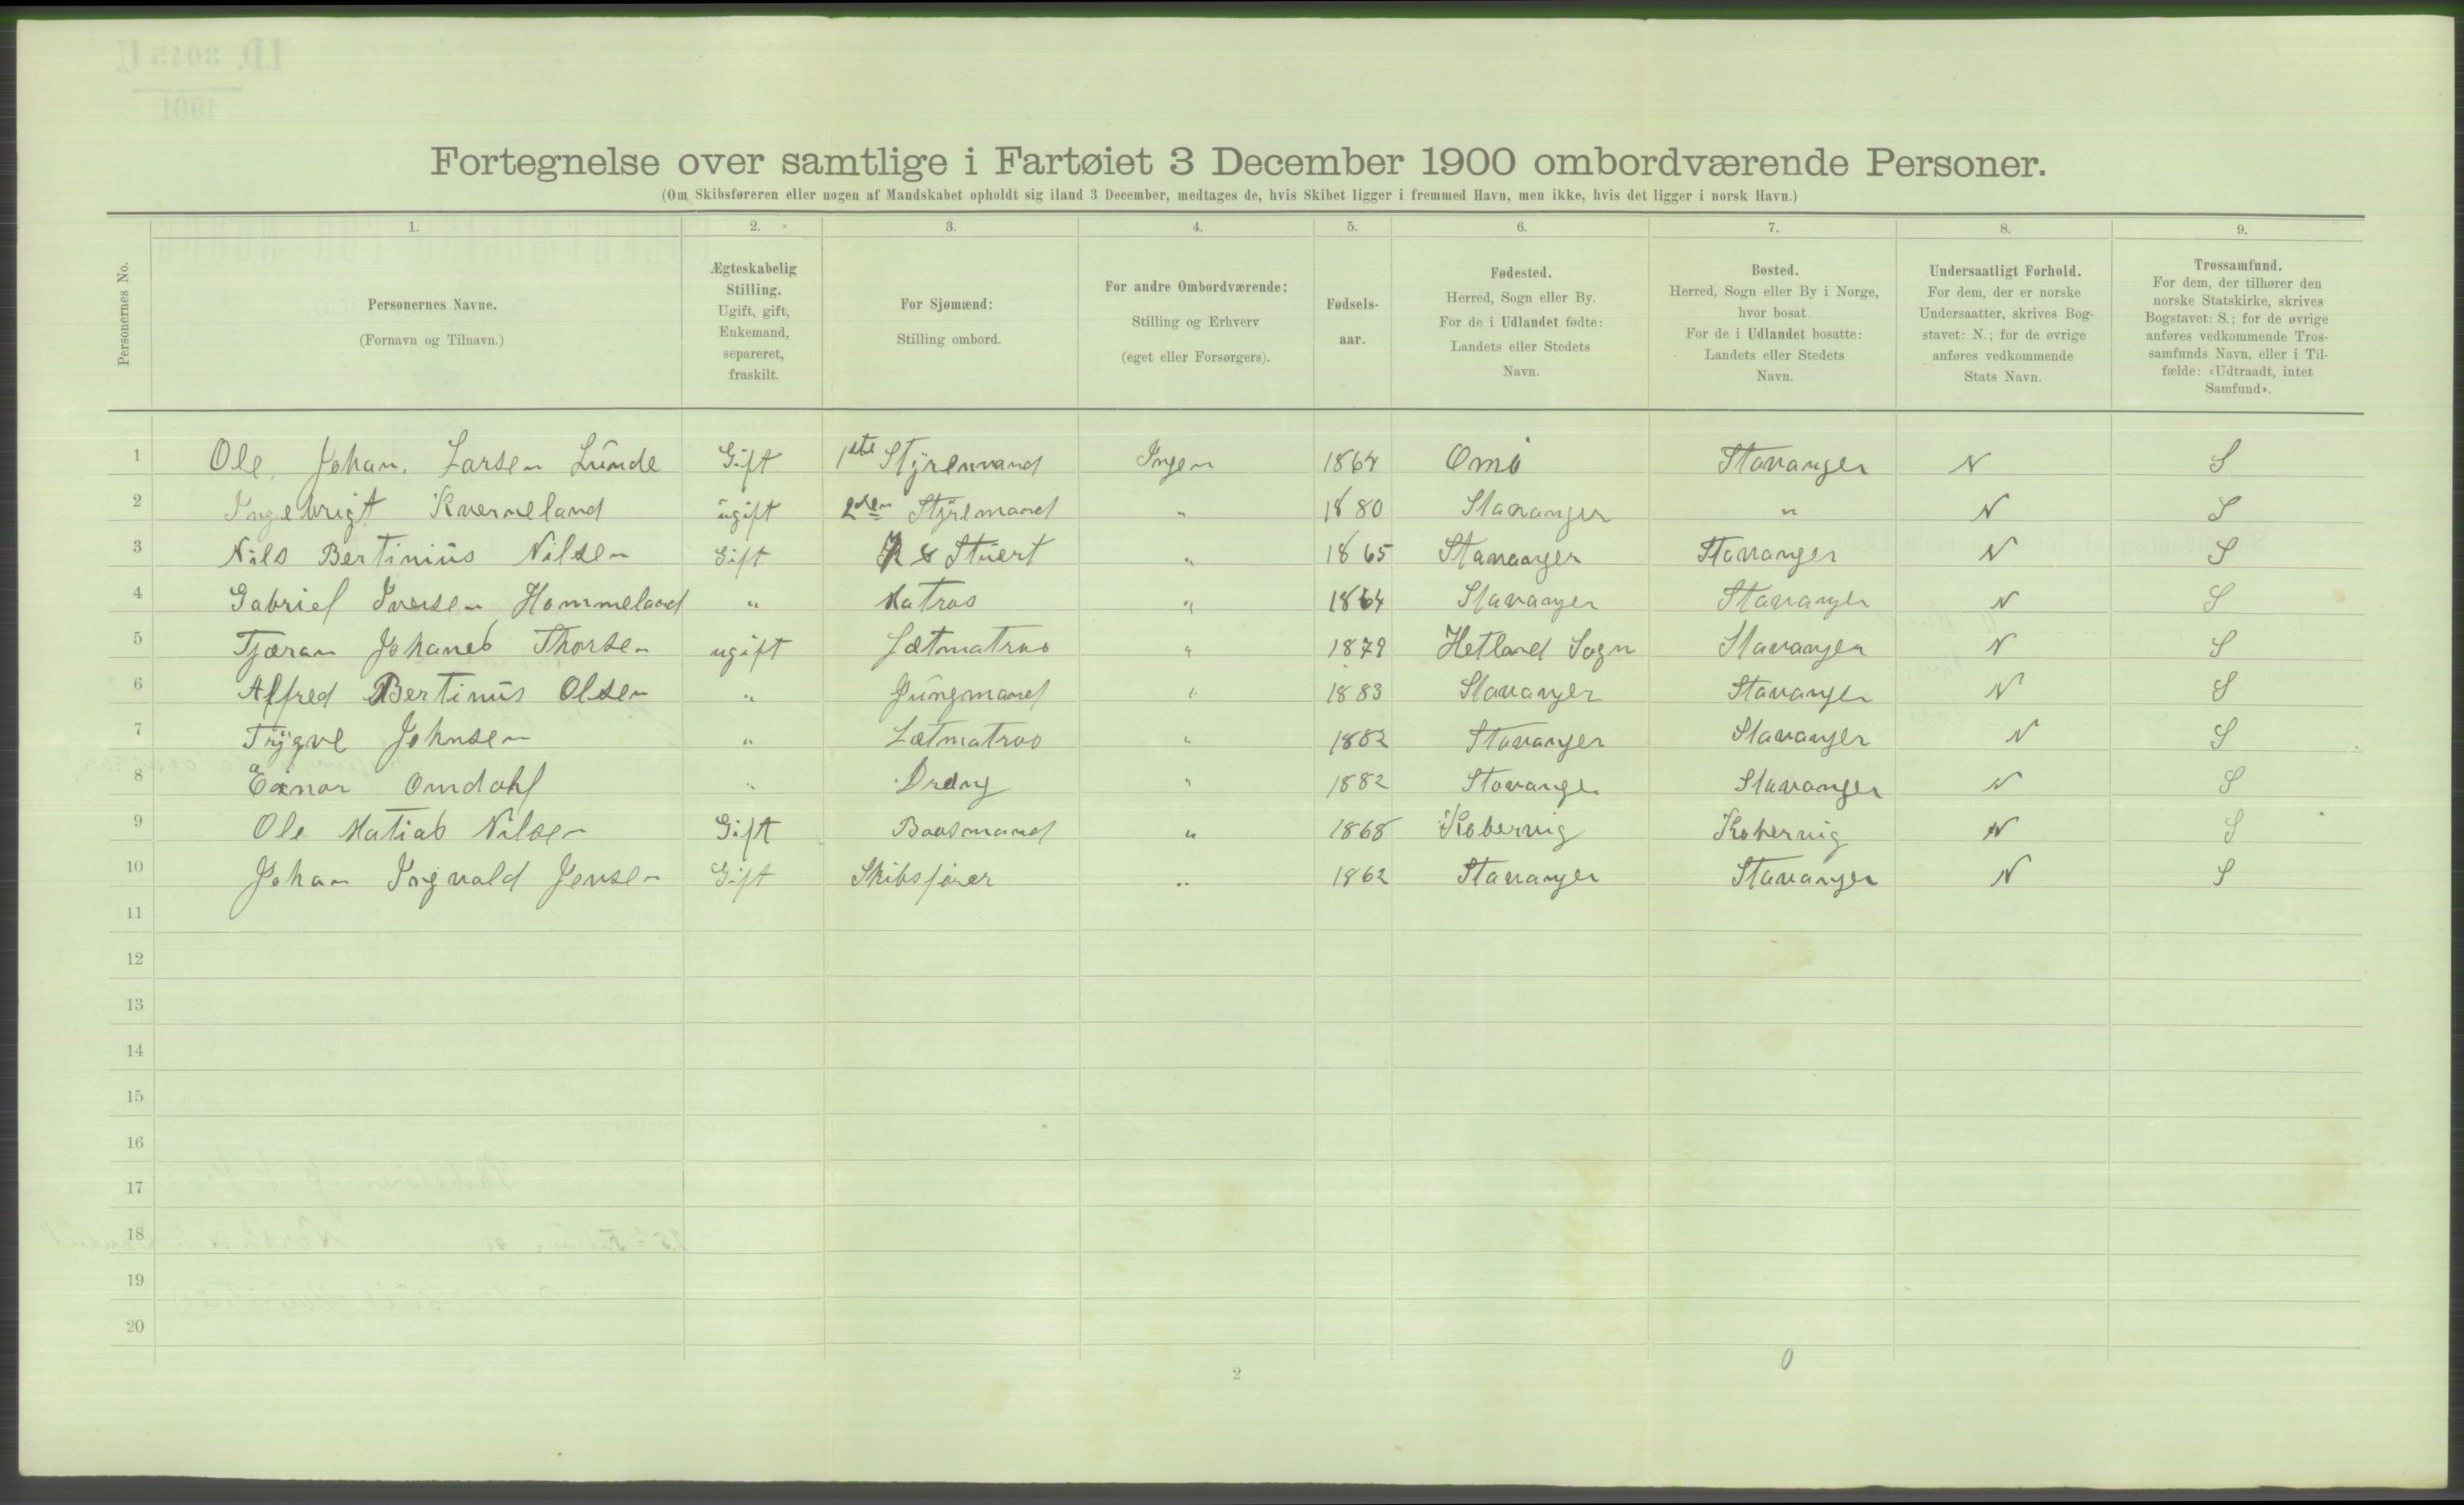 Fortegnelse over samtlige i Fartøiet 3 December 1900 ombordværende Personer.
(Om Skibsføreren eller nogen af Mandskabet opholdt sig iland 3 December, medtages de, hvis Skibet ligger i fremmed Havn, men ikke, hvis det ligger i norsk Havn.)
Personernes No.
1. 2. 3. 4. 5. 6. 7. 8. 9.
Personernes Navne.
(Fornavn og Tilnavn.)
Ægteskabelig
Stilling.
Ugift, gift,
Enkemand,
separeret,
fraskilt.
For Sjømænd:
Stilling ombord.
For andre Ombordværende:
Stilling og Erhverv
(eget eller Forsørgers).
Fødsels-
aar.
Fødested.
Herred, Sogn eller By.
For de i Udlandet fødte:
Landets eller Stedets
Navn.
Bosted.
Herred, Sogn eller By i Norge,
hvor bosat.
For de i Udlandet bosatte:
Landets eller Stedets
Navn.
Undersaatligt Forhold.
For dem, der er norske
Undersaatter, skrives Bog-
stavet: N.; for de øvrige
anføres vedkommende
Stats Navn.
Trossamfund.
For dem, der tilhører den
norske Statskirke, skrives
Bogstavet: S.; for de øvrige
anføres vedkommende Tros-
samfunds Navn, eller i Til-
fælde: «Udtraadt, intet
Samfund».
1 Ole, Johan, Larsen Lunde Gift 1ste Styremand Ingen 1864 Omö Stavanger N S
2 Ingebrigt Kverneland ugift 2den Styremand " 1880 Stavanger " N S
3 Nils Bertinius Nilsen Gift K & Stuert " 1865 Stavanger Stavanger N S
4 Gabriel Iversen Hommeland " Matros " 1864 Stavanger Stavanger N S
5 Tjæran Johanes Thorsen ugift Lætmatros " 1879 Hetland Sogn Stavanger N S
6 Alfred Bertinus Olsen " Jungmand " 1883 Stavanger Stavanger N S
7 Trygve Johnsen " Lætmatros " 1882 Stavanger Stavanger N S
8 Einar Omdahl " Dreng " 1882 Stavanger Stavanger N S
9 Ole Matias Nilsen Gift Baasmand " 1868 Kobervig Kobervig N S
10 Johan Ingvald Jensen Gift Skibsfører " 1862 Stavanger Stavanger N S
11
12
13
14
15
16
17
18
19
20
0
2